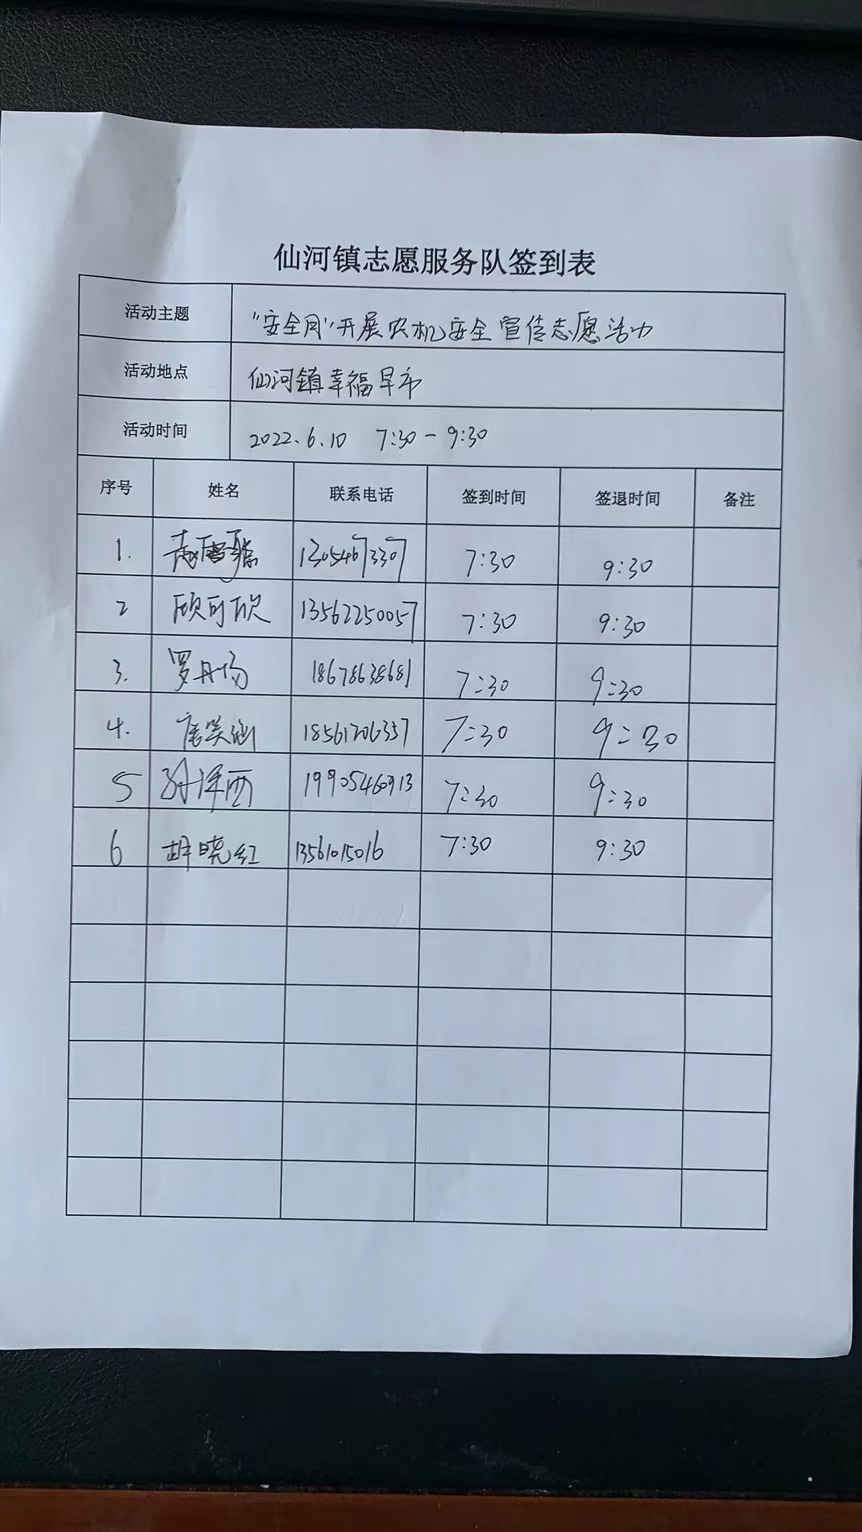 仙河镇志愿服务队签到表
活动主题 "安全月"开展农机安全宣传志愿活动
活动地点 仙河镇幸福早市
活动时间 2022.6.10 7:30-9:30
序号 姓名 联系电话 签到时间 签退时间 备注
1. 13054673307 7:30 9:30
2 顾可欣 13562250057 7:30 9:30
3. 罗丹扬 18678638681 7:30 9:30
4. 唐笑涵 18561206357 7:30 9:30
5 孙泽西 19905460913 7:30 9:30
6 胡晓红 13561015016 7:30 9:30